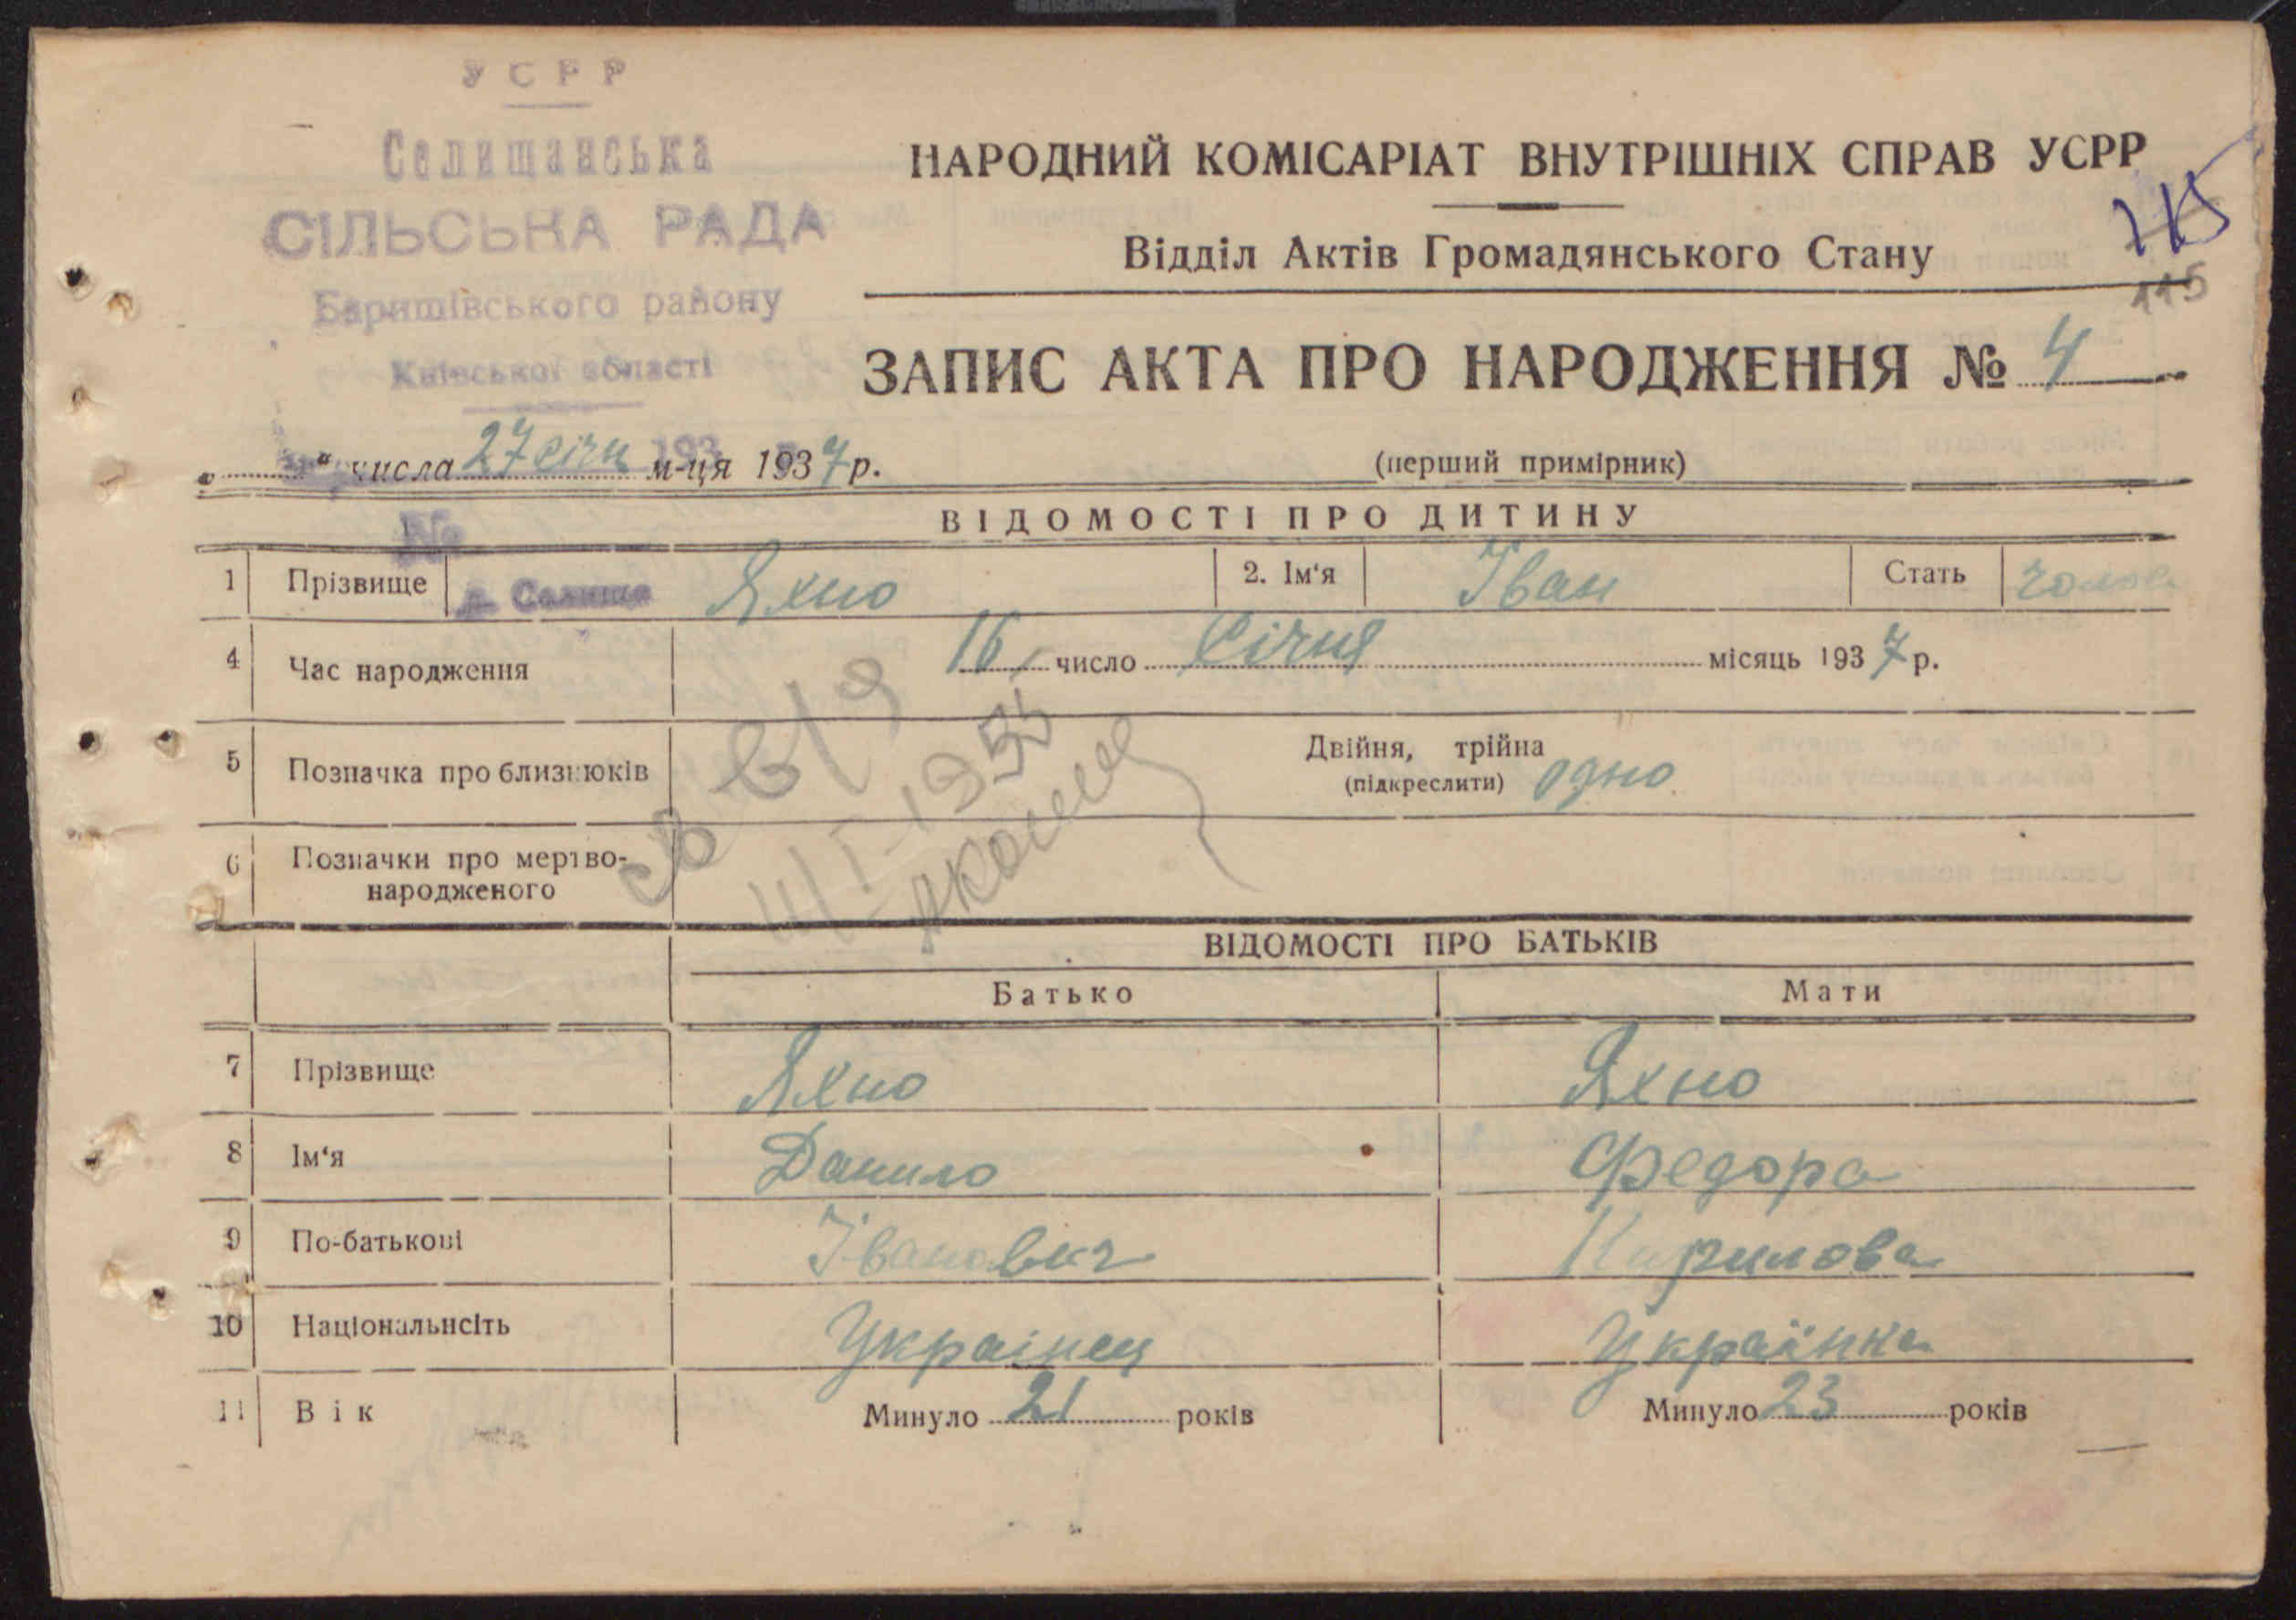 УСРР
Селищанська
СІЛЬСЬКА РАДА
Баришівського району
Київської області
НАРОДНИЙ КОМІСАРІАТ ВНУТРІШНІХ СПРАВ УСРР
Відділ Актів Громадянського Стану
115
ЗАПИС АКТА ПРО НАРОДЖЕННЯ № 4
„ “ числа 27 січн м-ця 1937 р.
193
(перший примірник)
№
ВІДОМОСТІ ПРО ДИТИНУ
1 Прізвище с. Селище Яхно 2. Ім‘я Іван Стать чолов
4 Час народження 16 число Січня місяць 1937 р.
5 Позначка про близнюків Двійня, трійна
(підкреслити) одно
6 Позначки про мертво-
народженого
ВІДОМОСТІ ПРО БАТЬКІВ
Батько Мати
7 Прізвище Яхно Яхно
8 Ім‘я Данило Федора
9 По-батькові Іванович Кирилова
10 Національнсіть Українец Українка
11 Вік Минуло 21 років Минуло 23 років